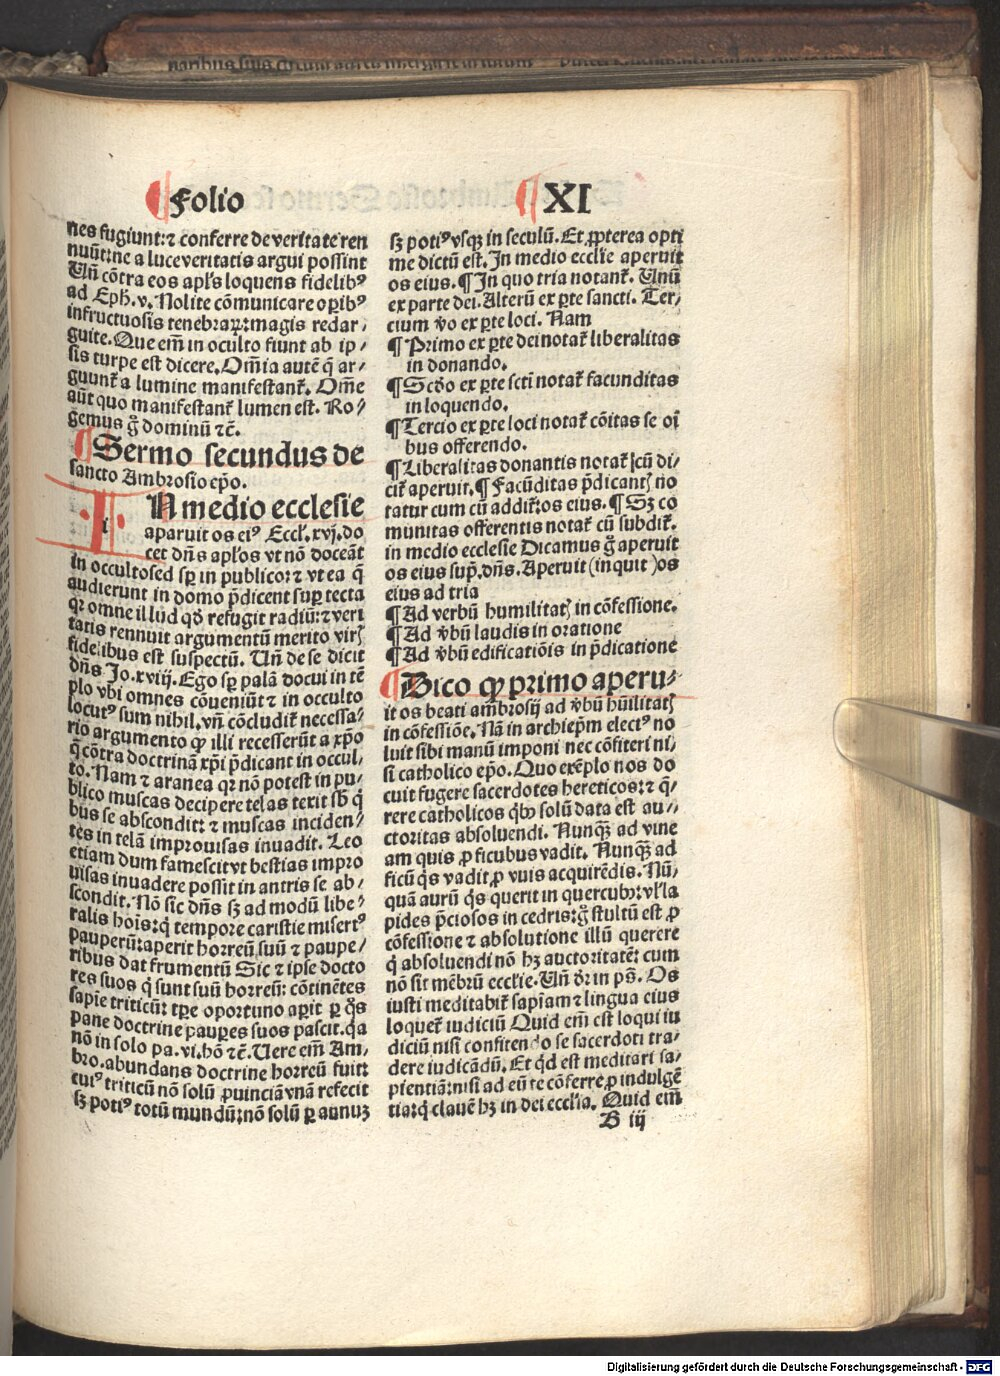 ¶ Folio ¶ XI
nes fugiunt: ⁊ conferre de veritate ren
nuũt: ne a luce veritatis argui possint
Uñ cõtra eos apl's loquens fidelibꝰ
ad Eph. v. Nolite cõmunicare oꝑibꝰ
infructuosis tenebraꝝ: magis redar⸗
guite. Que em̃ in occulto fiunt ab ip⸗
sis turpe est dicere. Om̃ia autẽ q̃ ar⸗
guunt̃ a lumine manifestant̃. Om̃e
aũt quo manifestant̃ lumen est. Ro⸗
gemus g̃ dominũ ⁊c̃.
¶ Sermo secundus de
sancto Ambrosio ep̃o.
i
N medio ecclesie
aparuit os eiꝰ Eccl'. xvj. do
cet dñs apl'os vt nõ doceãt
in occulto sed sꝑ in publico: ⁊ vt ea q̃
audierunt in domo p̃dicent suꝑ tecta
qꝛ omne illud qđ refugit radiũ: ⁊ veri
tatis rennuit argumentũ merito virꝭ
fidelibus est suspectũ. Uñ de se dicit
dñs Jo. xviij. Ego sꝑ palã docui in tẽ
plo vbi omnes cõueniũt ⁊ in occulto
locutꝰ sum nihil. vñ cõcludit̃ necessa⸗
rio argumento ꝙ illi recesserũt a xp̃o
q̃ cõtra doctrinã xp̃i p̃dicant in occul⸗
to. Nam ⁊ aranea qꝛ nõ potest in pu⸗
blico muscas decipere telas texit sb̃ q̃
bus se abscondit: ⁊ muscas inciden⸗
tes in telã improuisas inuadit. Leo
etiam dum famescit vt bestias impro
uisas inuadere possit in antris se ab⸗
scondit. Nõ sic dñs sꝫ ad modũ libe⸗
ralis hoĩs: q̃ tempore caristie misertꝰ
pauperũ: aperit horreũ suũ ⁊ paupe⸗
ribus dat frumentũ Sic ⁊ ipse docto
res suos q̃ sunt suũ horreũ: cõtinẽtes
sapĩe triticũ: tp̃e oportuno aꝑit ꝑ q̃s
pane doctrine pauꝑes suos pascit. q̃a
nõ in solo pa. vi. hõ ⁊c̃. Uere em̃ Am⸗
bro. abundans doctrine horreũ fuit:
cuiꝰ triticũ nõ solũ ꝓuinciã vnã refecit
sꝫ potiꝰ totũ mundũ: nõ solũ ꝑ annuꝫ
sꝫ potiꝰ vsqꝫ in seculũ. Et ꝓpterea opti
me dictũ est. In medio eccl'ie aperuit
os eius. ¶ In quo tria notant̃. Unũ
ex parte dei. Alterũ ex ꝑte sancti. Ter⸗
cium v̊o ex ꝑte loci. Nam
¶ Primo ex ꝑte dei notat̃ liberalitas
in donando.
¶ Scđo ex ꝑte sc̃ti notat̃ facunditas
in loquendo.
¶ Tercio ex ꝑte loci notat̃ cõitas se oĩ
bus offerendo.
¶ Liberalitas donantis notat̃ |cũ di⸗
cit̃ aperuit. ¶ Facũditas p̃dicantꝭ no
tatur cum cũ addit̃: os eius. ¶ Sꝫ co
munitas offerentis notat̃ cũ subdit̃.
in medio ecclesie Dicamus g̃ aperuit
os eius sup̃. dñs. Aperuit (inquit )os
eius ad tria
¶ Ad verbũ humilitatꝭ in cõfessione.
¶ Ad v̊bũ laudis in oratione
¶ Ad v̊bũ edificatiõis in p̃dicatione
¶ Dico ꝙ primo aperu⸗
it os beati ambrosij ad v̊bũ hũilitatꝭ
in cõfessiõe. Nã in archiep̃m electꝰ no
luit sibi manũ imponi nec cõfiteri ni⸗
si catholico ep̃o. Quo exẽplo nos do
cuit fugere sacerdotes hereticos: ⁊ q̃⸗
rere catholicos qͥbꝰ solũ data est au⸗
ctoritas absoluendi. Nunqͣꝫ ad vine
am quis ꝓ ficubus vadit. Nunqͣꝫ ad
ficũ q̃s vadit ꝓ vuis acquirẽdis. Nũ⸗
quã aurũ q̃s querit in quercubꝰ: vl' la
pides p̃ciosos in cedris: g̃ stultũ est ꝓ
cõfessione ⁊ absolutione illũ querere
q̃ absoluendi nõ hꝫ auctoritatẽ: cum
nõ sit mẽbrũ eccl'ie. Uñ đr in pš. Os
iusti meditabit̃ sapĩam ⁊ lingua eius
loquet̃ iudiciũ Quid em̃ est loqui iu
diciũ nisi confitendo se sacerdoti tra⸗
dere iudicãdũ. Et q̃d est meditari sa⸗
pientiã: nisi ad eũ te cõferre ꝓ indulgẽ
tia: q̃ clauẽ hꝫ in dei eccl'ia. Quid em̃
B iij
Digitalisierung gefördert durch die Deutsche Forschungsgemeinschaft - DFG